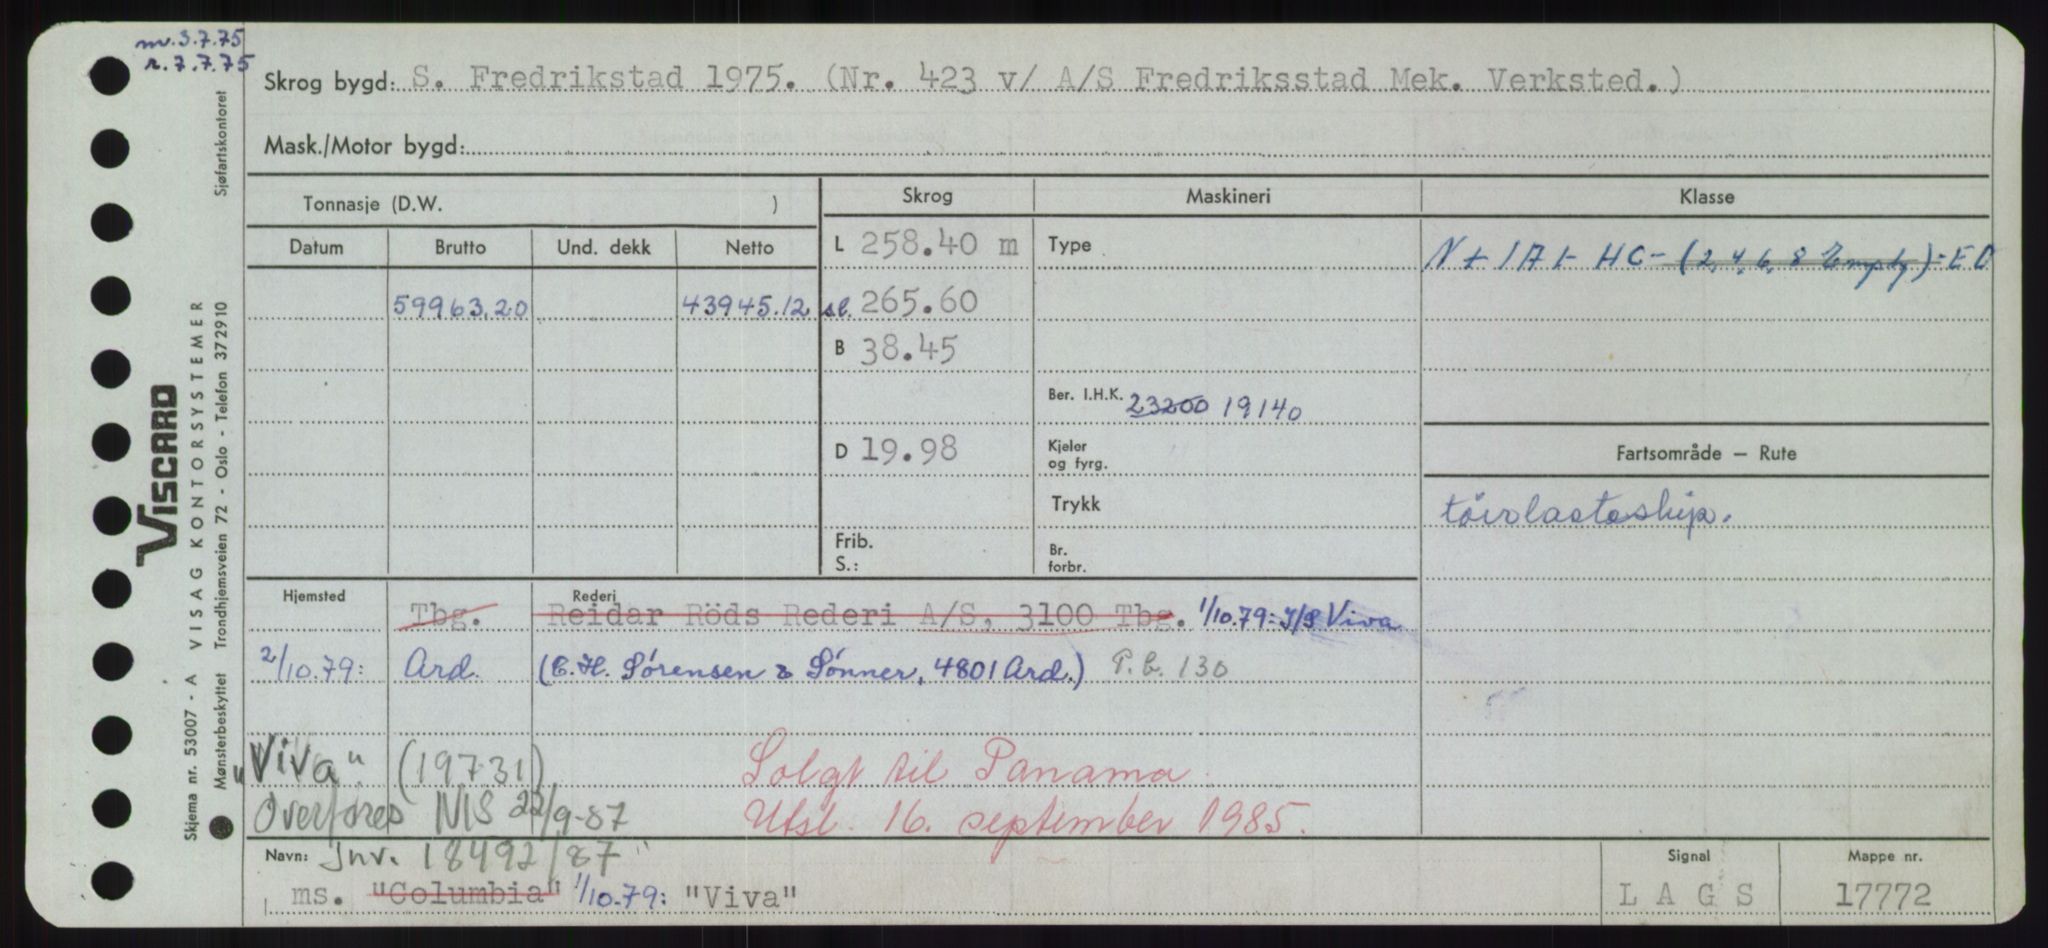 nv. 3.7.75
r. 7.7.75
Skrog bygd: S. Fredrikstad 1975. (Nr. 423 v/ A/S Fredriksstad Mek. Verksted.)
Mask./Motor bygd:
Tonnasje (D.W. )
Skrog
Maskineri
Klasse
Datum Brutto Und. dekk Netto
L 258.40 m
Type
N + 1A1- HC - (2, 4, 6, 8 Empty) - EO
59963.20 43945.12
sl. 265.60
B 38.45
Ber. I.H.K. 23200 19140
D 19.98
Kjeler
og fyrg.
Fartsområde — Rute
Trykk
törrlasteskip.
Frib.
S.:
Br.
forbr.
Hjemsted Rederi
Tbg. Reidar Röds Rederi A/S, 3100 Tbg. 1/10.79: I/S Viva
2/10.79: Ard. (C.H. Sørensen & Sønner, 4801 Ard.) P.b. 130
"Viva" (19731) Solgt til Panama
Overføres NIS 22/9-87 Utsl. 16. september 1985.
Navn: Jnr. 18492/87
ms. "Columbia" 1/10.79: "Viva"
Signal
L A G S
Mappe nr.
17772
Sjøfartskontoret
VISCARD
VISAG KONTORSYSTEMER
Skjema nr. 53007 - A
Mønsterbeskyttet Trondhjemsveien 72 - Oslo - Telefon 372910